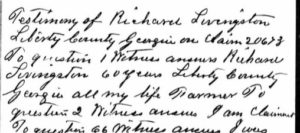 Testimony of Richard Livingston
Liberty County Georgia on Claim 20673
To question 1 Witness answers Richard
Livingston 60 years Liberty County
Georgia all my life Farmer To
question 2 Witness answers I am Claimant
To question 66 Witness answers I was